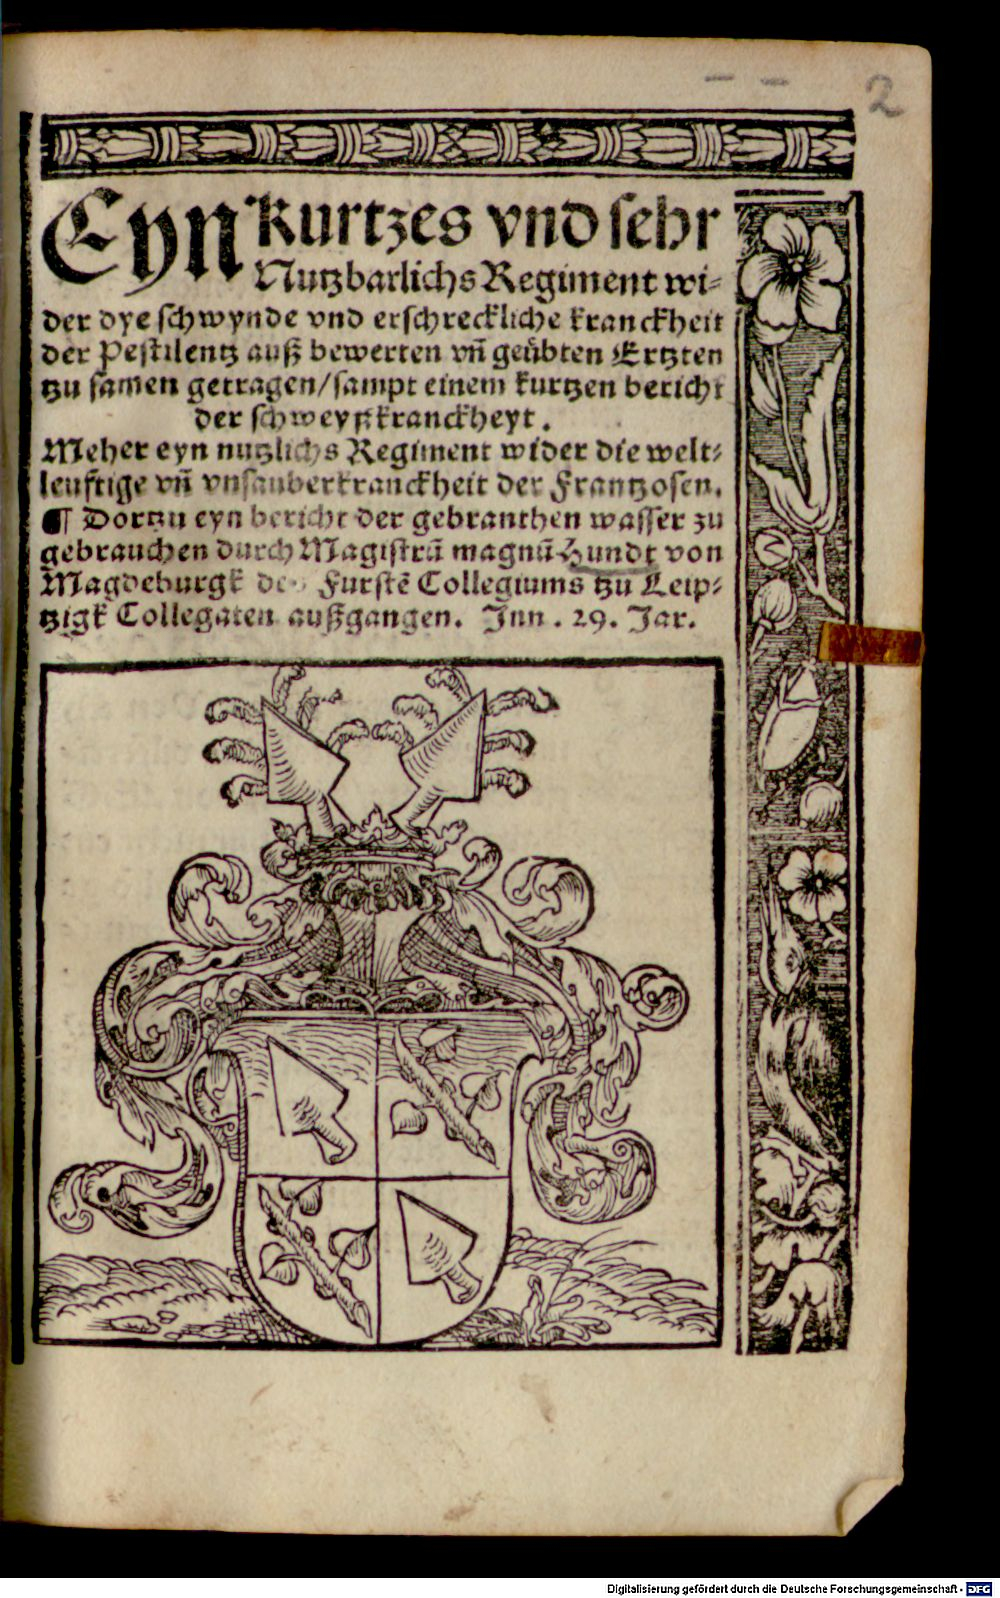 2
Eyn kurtzes vnd sehr
Nutzbarlichs Regiment wi-
der dye schwynde vnd erschreckliche kranckheit
der Pestilentz auß bewerten vñ geübten Ertzten
tzu samen getragen/sampt einem kurtzen bericht
der schweyßkranckheyt.
Meher eyn nutzlichs Regiment wider die welt-
leuftige vñ vnsauberkranckheit der Frantzosen.
¶ Dortzu eyn bericht der gebranthen wasser zu
gebrauchen durch Magistrũ magnũ Hundt von
Magdeburgk des Furstẽ Collegiums tzu Leip-
tzigk Collegaten außgangen. Jnn . 29. Jar.
Digitalisierung gefördert durch die Deutsche Forschungsgemeinschaft - DFG